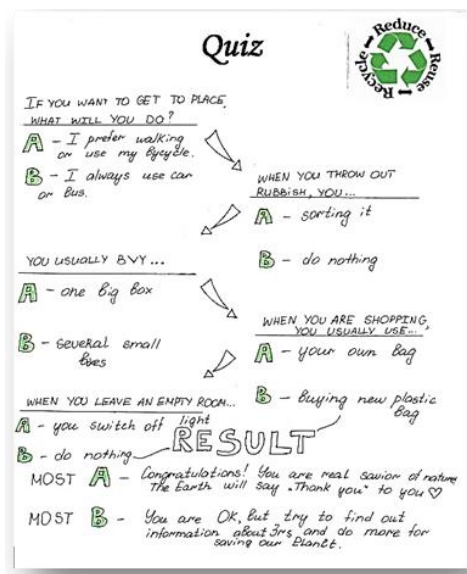 Quiz
Reduce
Reuse
Recycle
IF YOU WANT TO GET TO PLACE,
WHAT WILL YOU DO?
A – I prefer walking
or use my bycycle.
B – I always use car
or bus.
WHEN YOU THROW OUT
RUBBISH, YOU...
A – sorting it
B – do nothing
YOU USUALLY BUY...
A – one big box
B – several small
boxes
WHEN YOU ARE SHOPPING,
YOU USUALLY USE...
A – your own bag
B – buying new plastic
bag
WHEN YOU LEAVE AN EMPTY ROOM...
A – you switch off light
B – do nothing
RESULT
MOST A – Congratulations! You are real savior of nature
The Earth will say „Thank you" to you ♡
MOST B – You are OK, but try to find out
information about 3rs and do more for
saving our Planet.